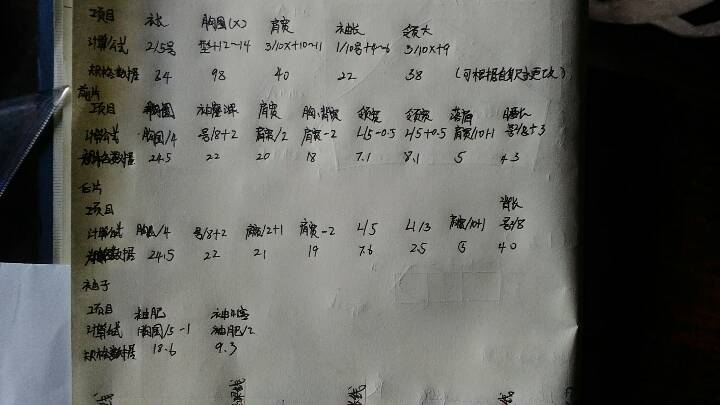 项目 衣长 胸围(X) 肩宽 袖长 领大
计算公式 2/5号 型+12~14 3/10X+10~11 1/10号+4~6 3/10X+9
规格数据 64 98 40 22 38 (可根据自身尺寸更改)
前片
项目 胸围 袖窿深 肩宽 胸/背宽 领宽 领深 落肩 腰长
计算公式 胸围/4 号/8+2 肩宽/2 肩宽-2 L/5-0.5 L/5+0.5 肩宽/10+1 号/8+3
规格数据 24.5 22 20 18 7.1 8.1 5 43
后片
项目 背长
计算公式 胸围/4 号/8+2 肩宽/2+1 肩宽-2 L/5 L1/3 肩宽/10+1 号/8
规格数据 24.5 22 21 19 7.6 2.5 5 40
袖子
项目 袖肥
计算公式 胸围/5-1 袖肥/2
规格数据 18.6 9.3